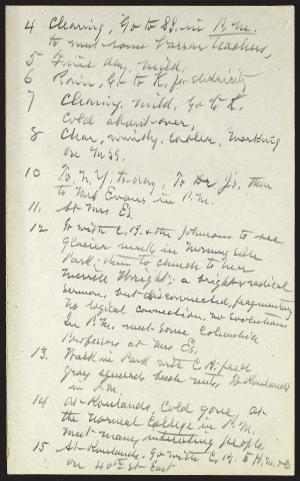 4 Clearing, Go to S.S. in P.M.
to meet some Vassar teachers,
5 Fine day, mild,
6 Rain, Go to K, for electricity
7 Clearing, mild, Go to K.
Cold about over,
8 Clear, windy, cooler, working
on MSS.
10 To N.Y. to-day, To Dr J's, then
to Mrs Evans in P.M.
11. At Mrs Es,
12 Go with C.B. & the Johnsons to see
glacier marks in Morning Side
Park; then to church to hear
Merrill Wright; a bright radical
sermon, but disconnected, fragmentary
no logical connection, no evolution
In P.M. meet some Columbia
Professors at Mrs Es,
13. Walk in Park with C.B. feed
gray squirrels beech nuts. To Rowlands
in P.M.
14 At Rowlands, Cold gone, at
the Normal College in P.M.
meet many people,
15 At Rowlands. Go with C.B. to H.M.
on 40th St East